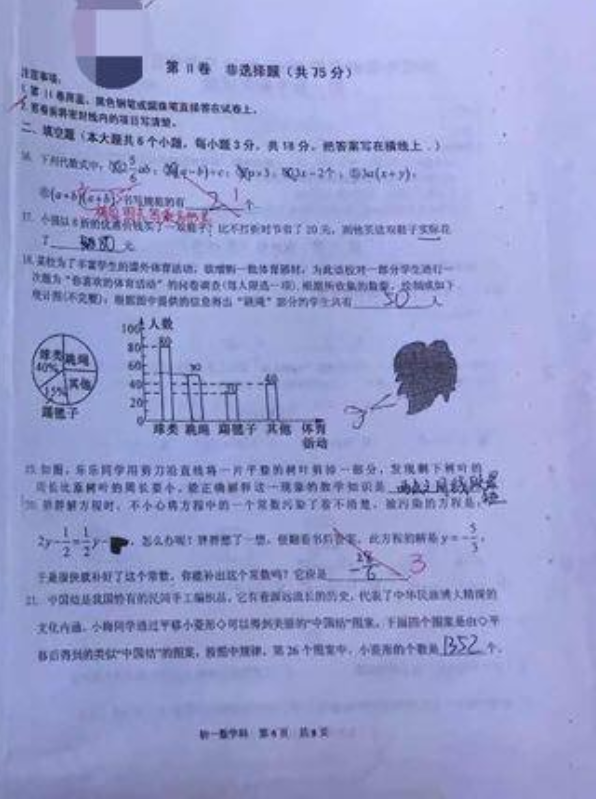 第 II 卷 非选择题（共 75 分）
注意事项：
1. 第 II 卷用蓝、黑色钢笔或圆珠笔直接答在试卷上。
2. 答卷前将密封线内的项目写清楚。
二、填空题（本大题共 6 个小题，每小题 3 分，共 18 分，把答案写在横线上．）
16. 下列代数式中，ab；(a-b)÷c；3x-2个，⑤3a(x+y)，
(a+b)÷(a+b) 书写规范的有 2 个 1
17. 小强以 8 折的优惠价钱买了一双鞋子，比不打折时节省了 20 元，则他买这双鞋子实际花
了 80 元
18. 某校为了丰富学生的课外体育活动，欲增购一批体育器材，为此该校对一部分学生进行一
次题为“你喜欢的体育活动”的问卷调查（每人限选一项），根据所收集的数据，绘制成如下
统计图（不完整），根据图中提供的信息得出“跳绳”部分的学生共有 50 人
球类 跳绳
40% 其他
15%
踢毽子
人数
100
80
60
40
20
0
80 50 30 40
球类 跳绳 踢毽子 其他 体育
活动
19. 如图，乐乐同学用剪刀沿直线将一片平整的树叶剪掉一部分，发现剩下树叶的
周长比原树叶的周长要小，能正确解释这一现象的数学知识是 两点之间线段最
短
20. 胖胖解方程时，不小心将方程中的一个常数污染了看不清楚，被污染的方程是：
2y-1/2=1/2y-，怎么办呢？胖胖想了一想，便翻看书后答案，此方程的解是 y=-5/3，
于是很快就补好了这个常数，你能补出这个常数吗？它应是 3
21. 中国结是我国特有的民间手工编织品，它有着源远流长的历史，代表了中华民族博大精深的
文化内涵。小梅同学通过平移小菱形◇可以得到美丽的“中国结”图案，下面四个图案是由◇平
移后得到的类似“中国结”的图案，按图中规律，第 26 个图案中，小菱形的个数是 1352 个．
初一数学科 第 4 页 共 8 页